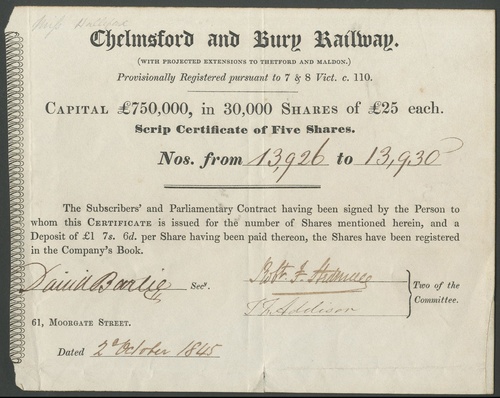 Chelmsford and Bury Railway.
(WITH PROJECTED EXTENSIONS TO THETFORD AND MALDON.)
Provisionally Registered pursuant to 7 & 8 Vict. c. 110.
CAPITAL £750,000, in 30,000 SHARES of £25 each.
Scrip Certificate of Five Shares.
Nos. from 13,926 to 13,930
The Subscribers' and Parliamentary Contract having been signed by the Person to
whom this CERTIFICATE is issued for the number of Shares mentioned herein, and a
Deposit of £1 7s. 6d. per Share having been paid thereon, the Shares have been registered
in the Company's Book.
David Secy.
Addison
Two of the
Committee.
61, MOORGATE STREET.
Dated 2d October 1845